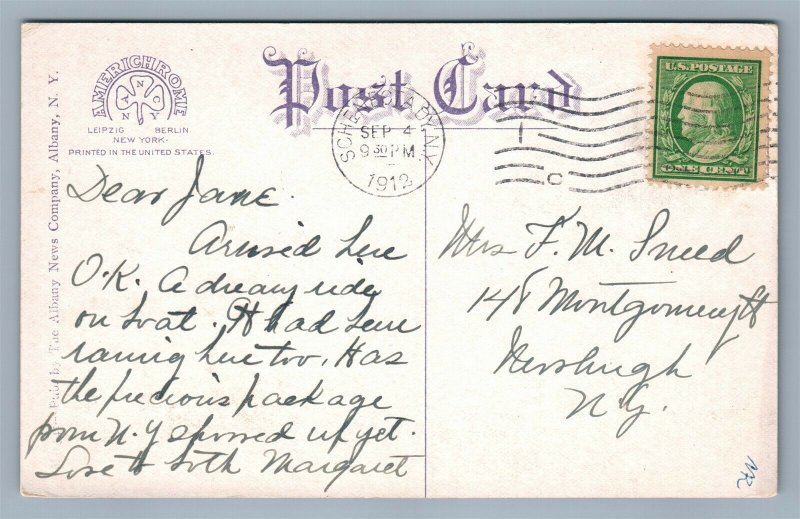 AMERICHROME
ANCNY
LEIPZIG BERLIN
NEW YORK
PRINTED IN THE UNITED STATES.
Post Card
SCHENECTADY, N.Y.
SEP 4
9 30 PM
1912
U.S. POSTAGE
ONE CENT
The Albany News Company, Albany, N. Y.
Dear Jane
Arrived here
O.K. A dreary ride
on boat. It had been
raining here too. Has
the precious package
from N.Y showed up yet.
Love to both Margaret
Mrs F. M. Sneed
148 Montgomery St
Newburgh
N.Y.